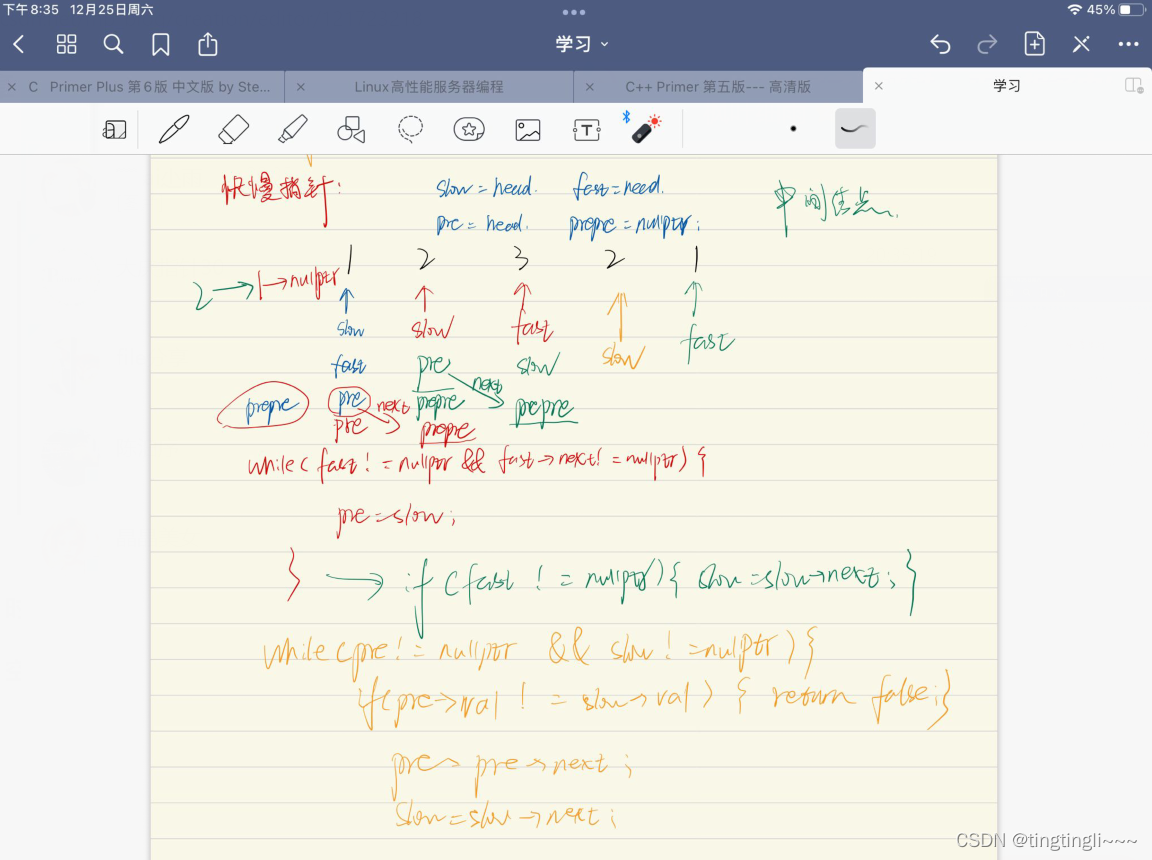 下午8:35 12月25日周六
45%
学习
C Primer Plus 第6版 中文版 by Ste...
Linux高性能服务器编程
C++ Primer 第五版--- 高清版
学习
快慢指针:
slow = head. fast = head.
pre = head. prepre = nullptr;
中间
1 2 3 2 1
2 → 1 → nullptr
slow slow fast slow fast
fast pre slow
next
prepre pre next prepre prepre
pre prepre
while(fast != nullptr && fast->next != nullptr){
pre = slow;
} → if (fast != nullptr){ slow = slow->next; }
while(pre != nullptr && slow != nullptr){
if(pre->val != slow->val) { return false; }
pre = pre->next;
slow = slow->next;
CSDN @tingtingli~~~